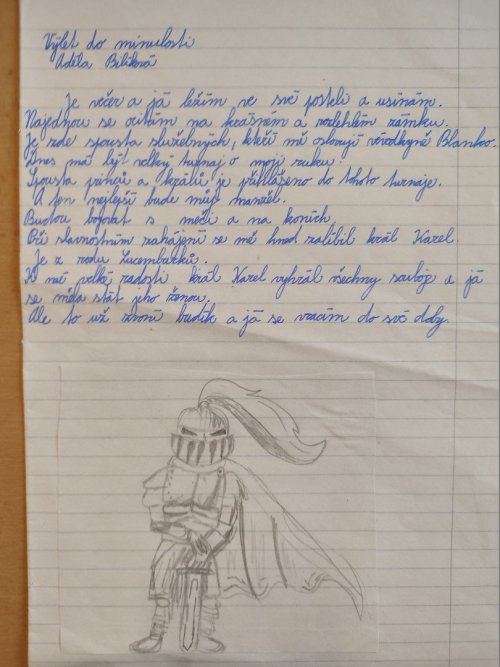 Výlet do minulosti
Adéla Bílíková
Je večer a já ležím ve své posteli a usínám.
Najednou se ocitám na krásném a rozlehlém zámku.
Je zde spousta služebných, kteří mě oslovují vévodkyně Blanko.
Dnes má být velký turnaj o moji ruku.
Spousta princů a králů je přihlášeno do tohoto turnaje.
A ten nejlepší bude můj manžel.
Budou bojovat s meči a na koních.
Při slavnostním zahájení se mě hned zalíbil král Karel.
Je z rodu Lucemburků.
K mé velké radosti král Karel vyhrál všechny souboje a já
se měla stát jeho ženou.
Ale to už zvoní budík a já se vracím do své doby.